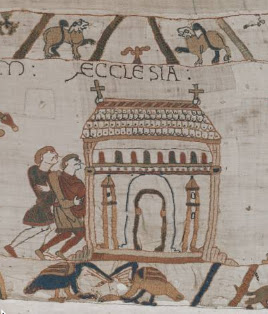 M: ÆCCLESIA: